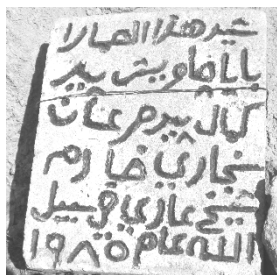 شيد هذا المزارا
بابا چاويش پير
كمال پير مرعنان
بنجاري خادم
شيخ عازي في سبيل
الله عام ١٩٨٥